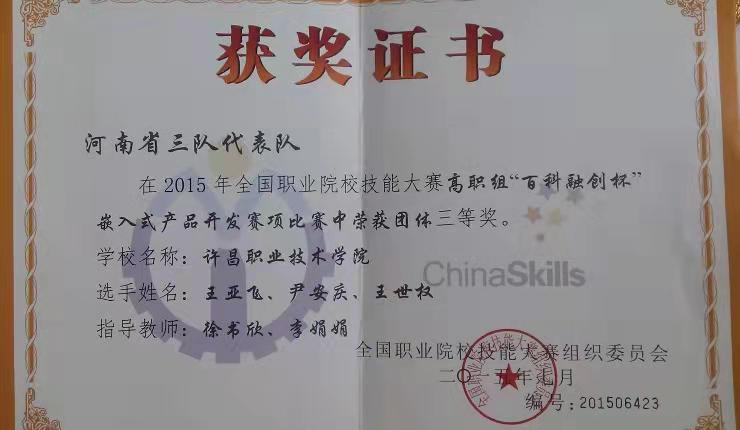 获奖证书
河南省三队代表队
在2015年全国职业院校技能大赛高职组“百科融创杯”
嵌入式产品开发赛项比赛中荣获团体三等奖。
学校名称：许昌职业技术学院
ChinaSkills
选手姓名：王亚飞、尹安庆、王世权
指导教师：徐书欣、李娟娟
全国职业院校技能大赛组织委员会
二〇一五年七月
编号：201506423